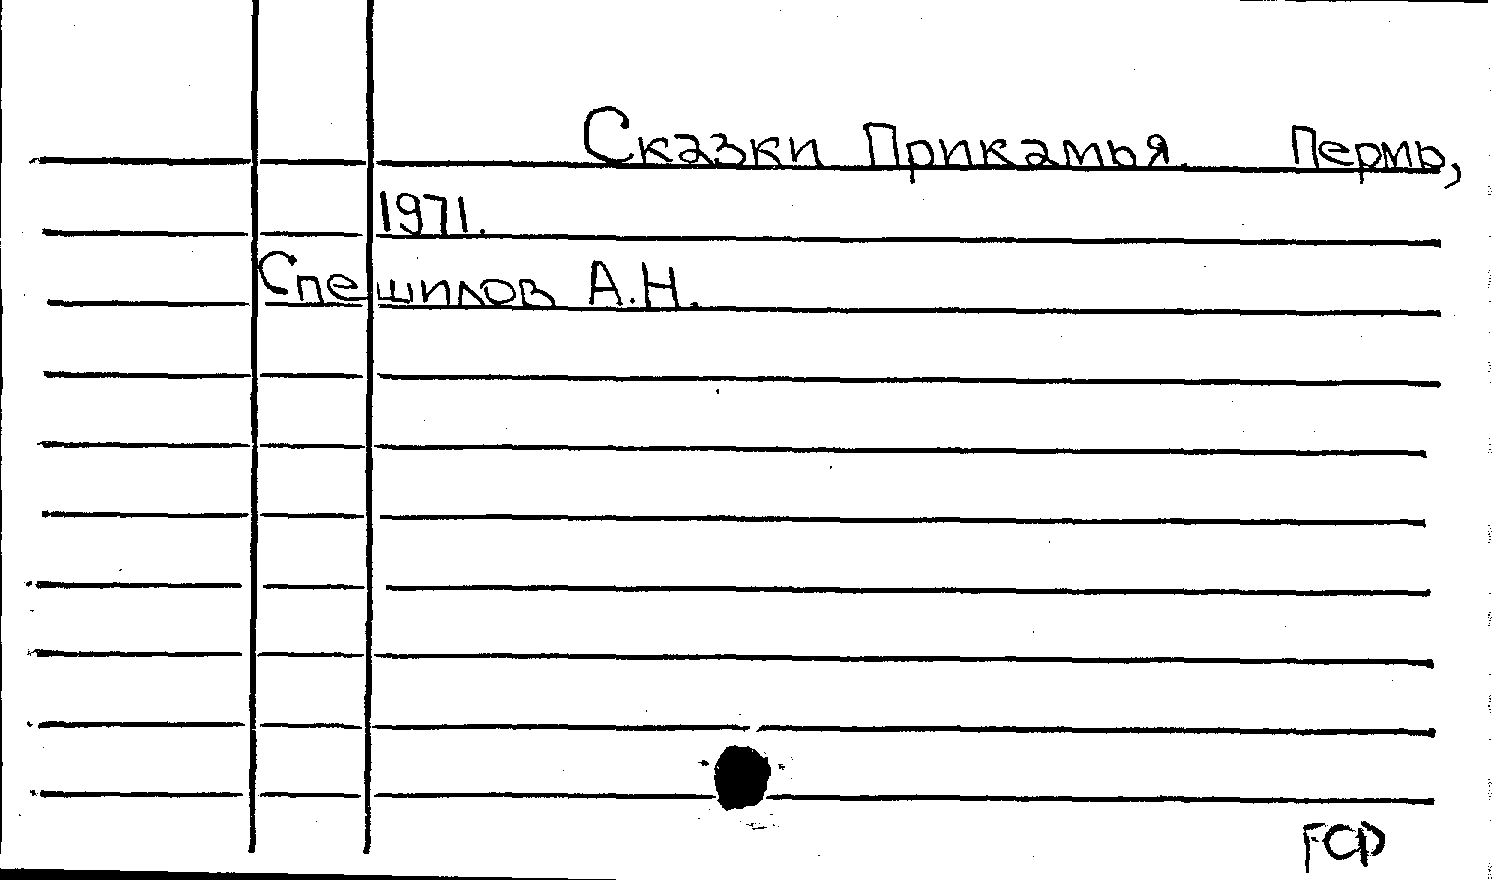 Сказки Прикамья. Пермь,
1971.
Спешилов А.Н.